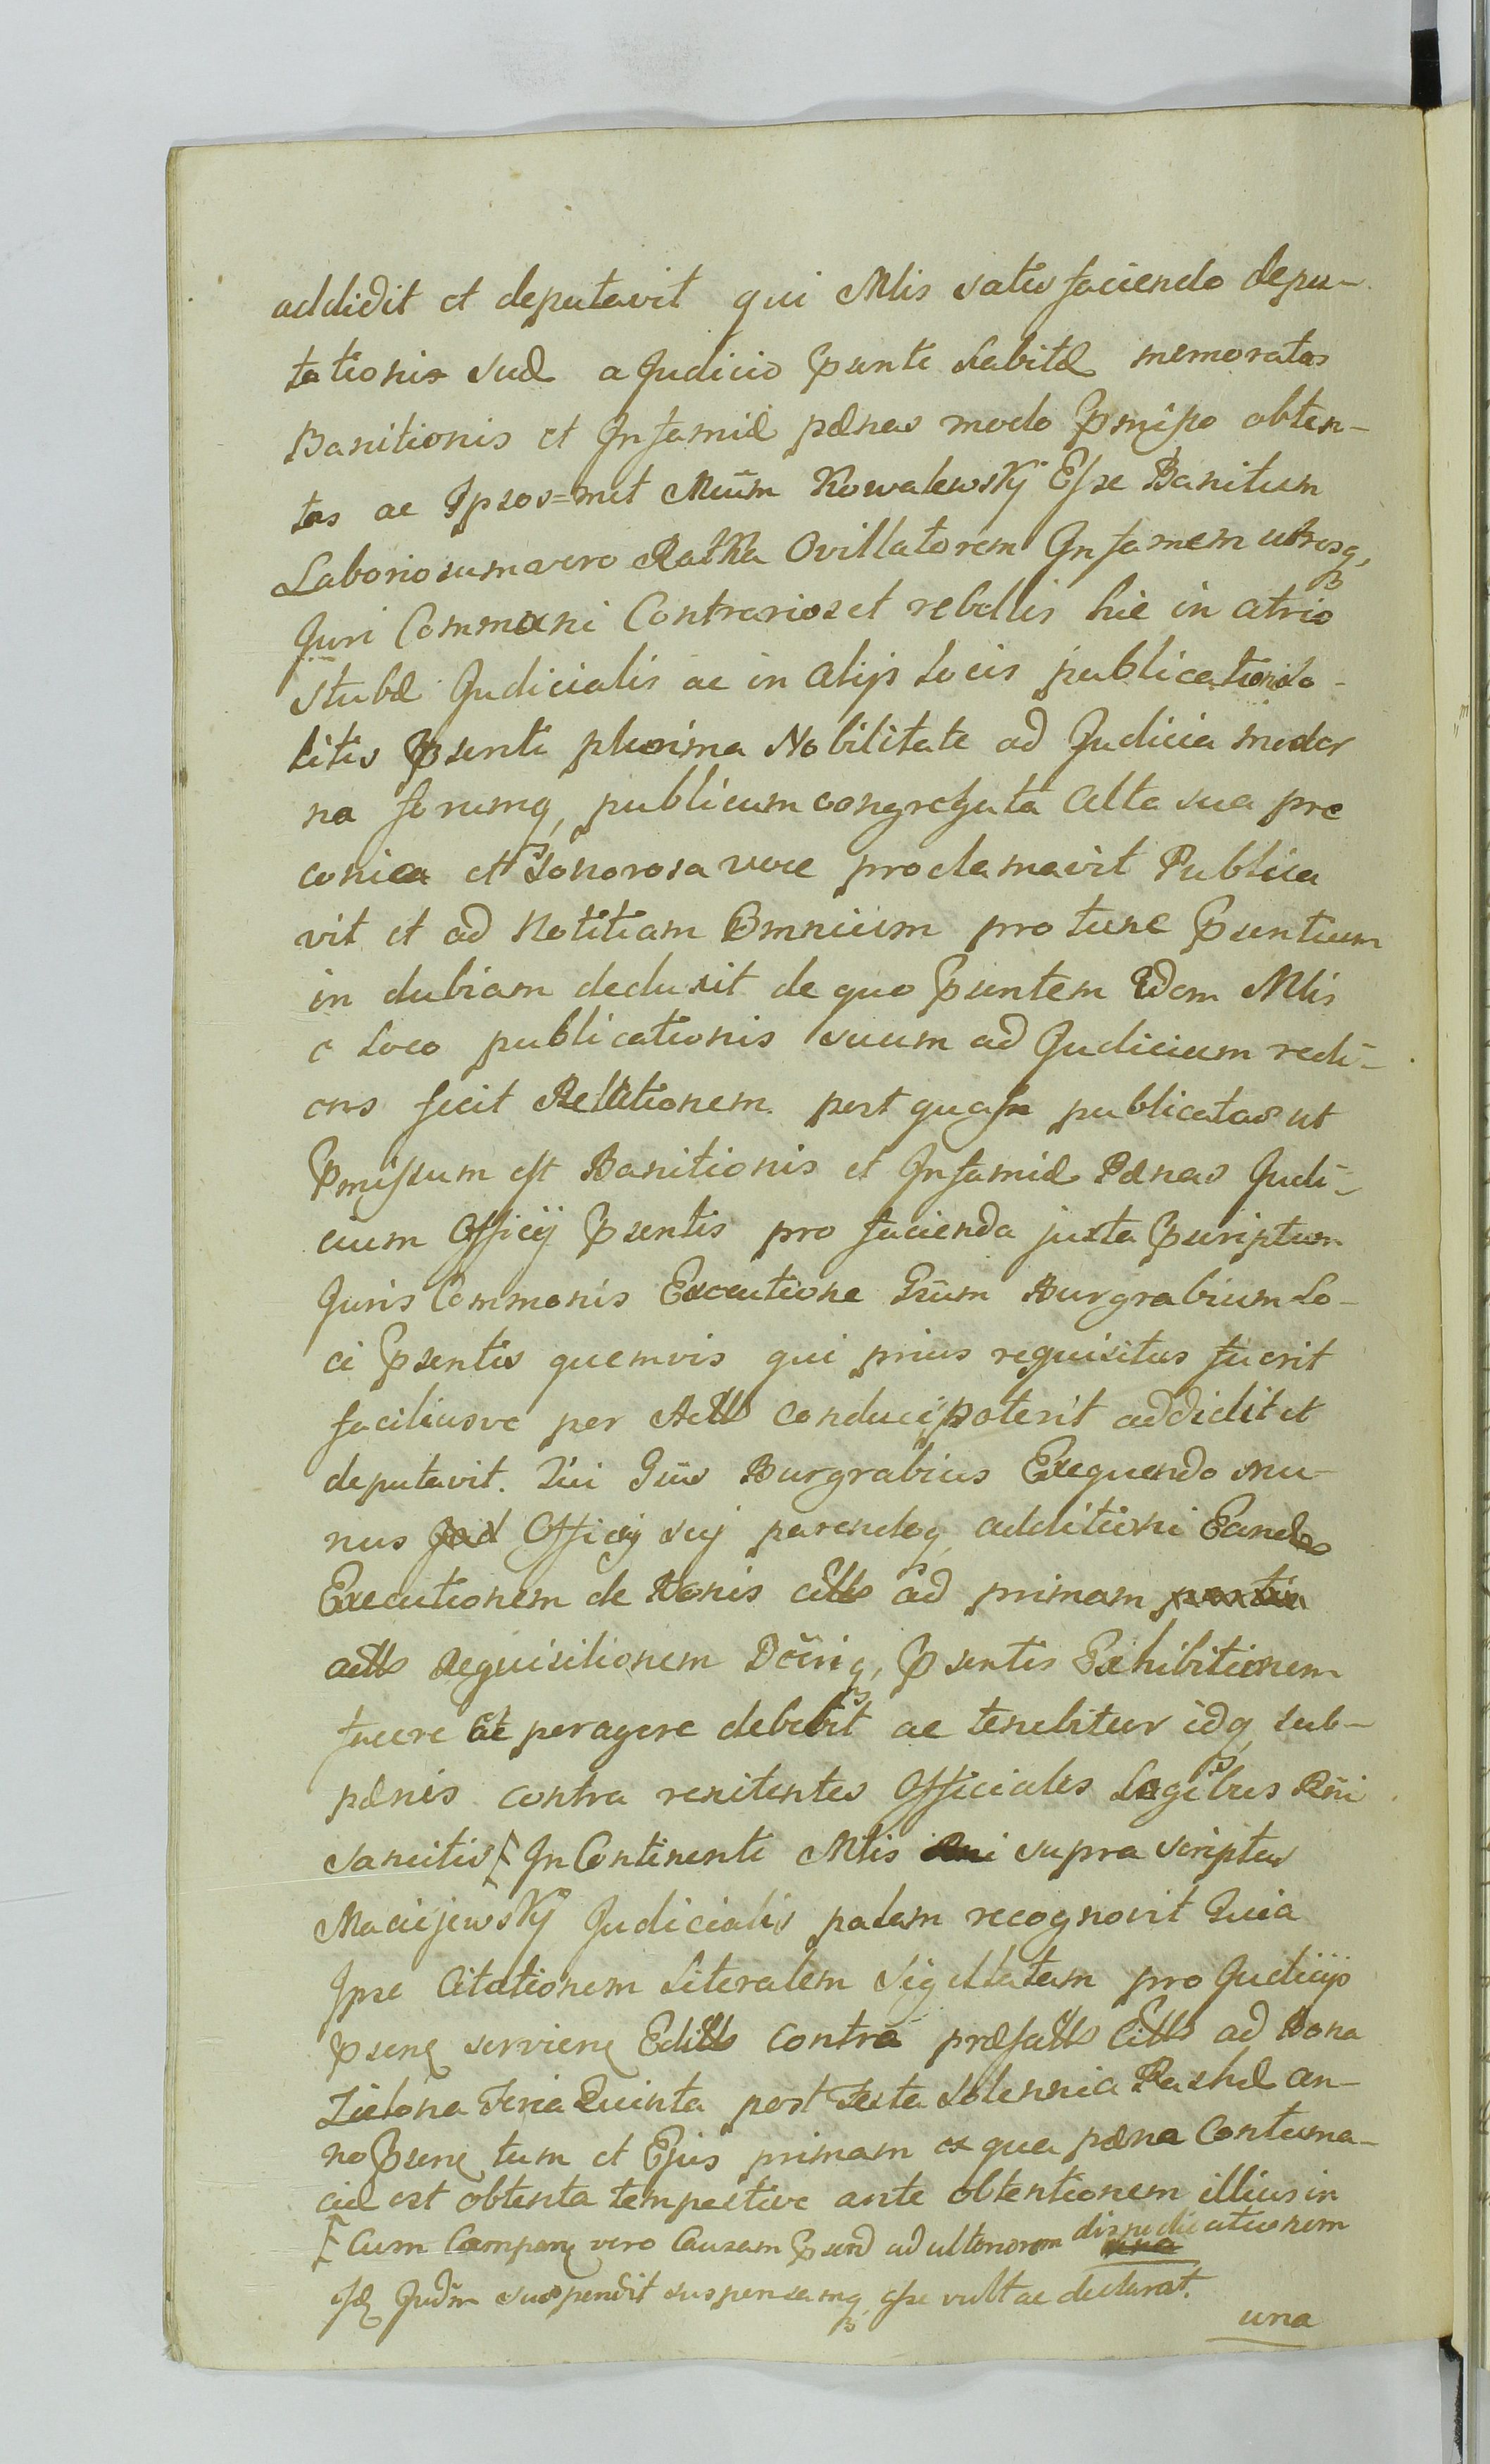 addidit et deputavit qui Mlis satisfaciendo depu-
tationis suæ a Judicio Psenti habitæ memoratas
Banitionis et Infamiæ pænas modo Pmisso obten-
tas ac Ipsos=met Mũm Kowalewskÿ Esse Banitum
Laboriosum vero Ratka Ovillatorem Infamem utrosq,
Juri Communi Contrarios et rebelles hic in atrio
stubæ Judicialis ac in Alijs Locis publicationi so-
litis Psenti plurima Nobilitate ad Judicia moder
na forumq, publicum congregata Alta sua pre
conica et sonorosa voce proclamavit Publica
vit et ad Notitiam Omnium pro tunc Psentium
in dubiam deduxit de quo Psentem Idem Mlis
e Loco publicationis suum ad Judicium redi-
ens fecit Relationem post quas publicatas ut
Pmissum est Banitionis et Infamiæ Pænas Judi-
cium Officÿ Psentis pro facienda juxta Pscriptum
Juris Communis Executione Gsũm Burgrabium Lo-
ci Psentis quemvis qui prius requisitus fuerit
faciliusve per Actt conduci poterit addidit et
deputavit. Qui Gsũs Burgrabius Exequendo mu-
nus Officÿ suj parendoq, additioni
Executionem de Bonis citt ad primam
actt Requisitionem Psentis Exhibitionem
facere et peragere debebit ac tenebitur idq, sub-
pænis contra renitentes Officiales Legibus Rñi
sancitis [ In Continenti Mlis supra scriptus
Maciejewskÿ Judicialis palam recognovit Quia
Ipse Citationem Literalem Sigillatam pro Judicijs
Psenę servienę Editt contra præfatt Citt ad Bona
Zielona Feria Quinta post Festa Solennia Paschæ an-
no Psenę tum et Ejus primam ex qua pæna Contuma-
ciæ est obtenta tempestive ante obtentionem illius in
[ Cum Comparę vero Causam Psend ad ulteriorem disjudicationem
Judm suspendit suspensamq, esse vult ac declarat.
una